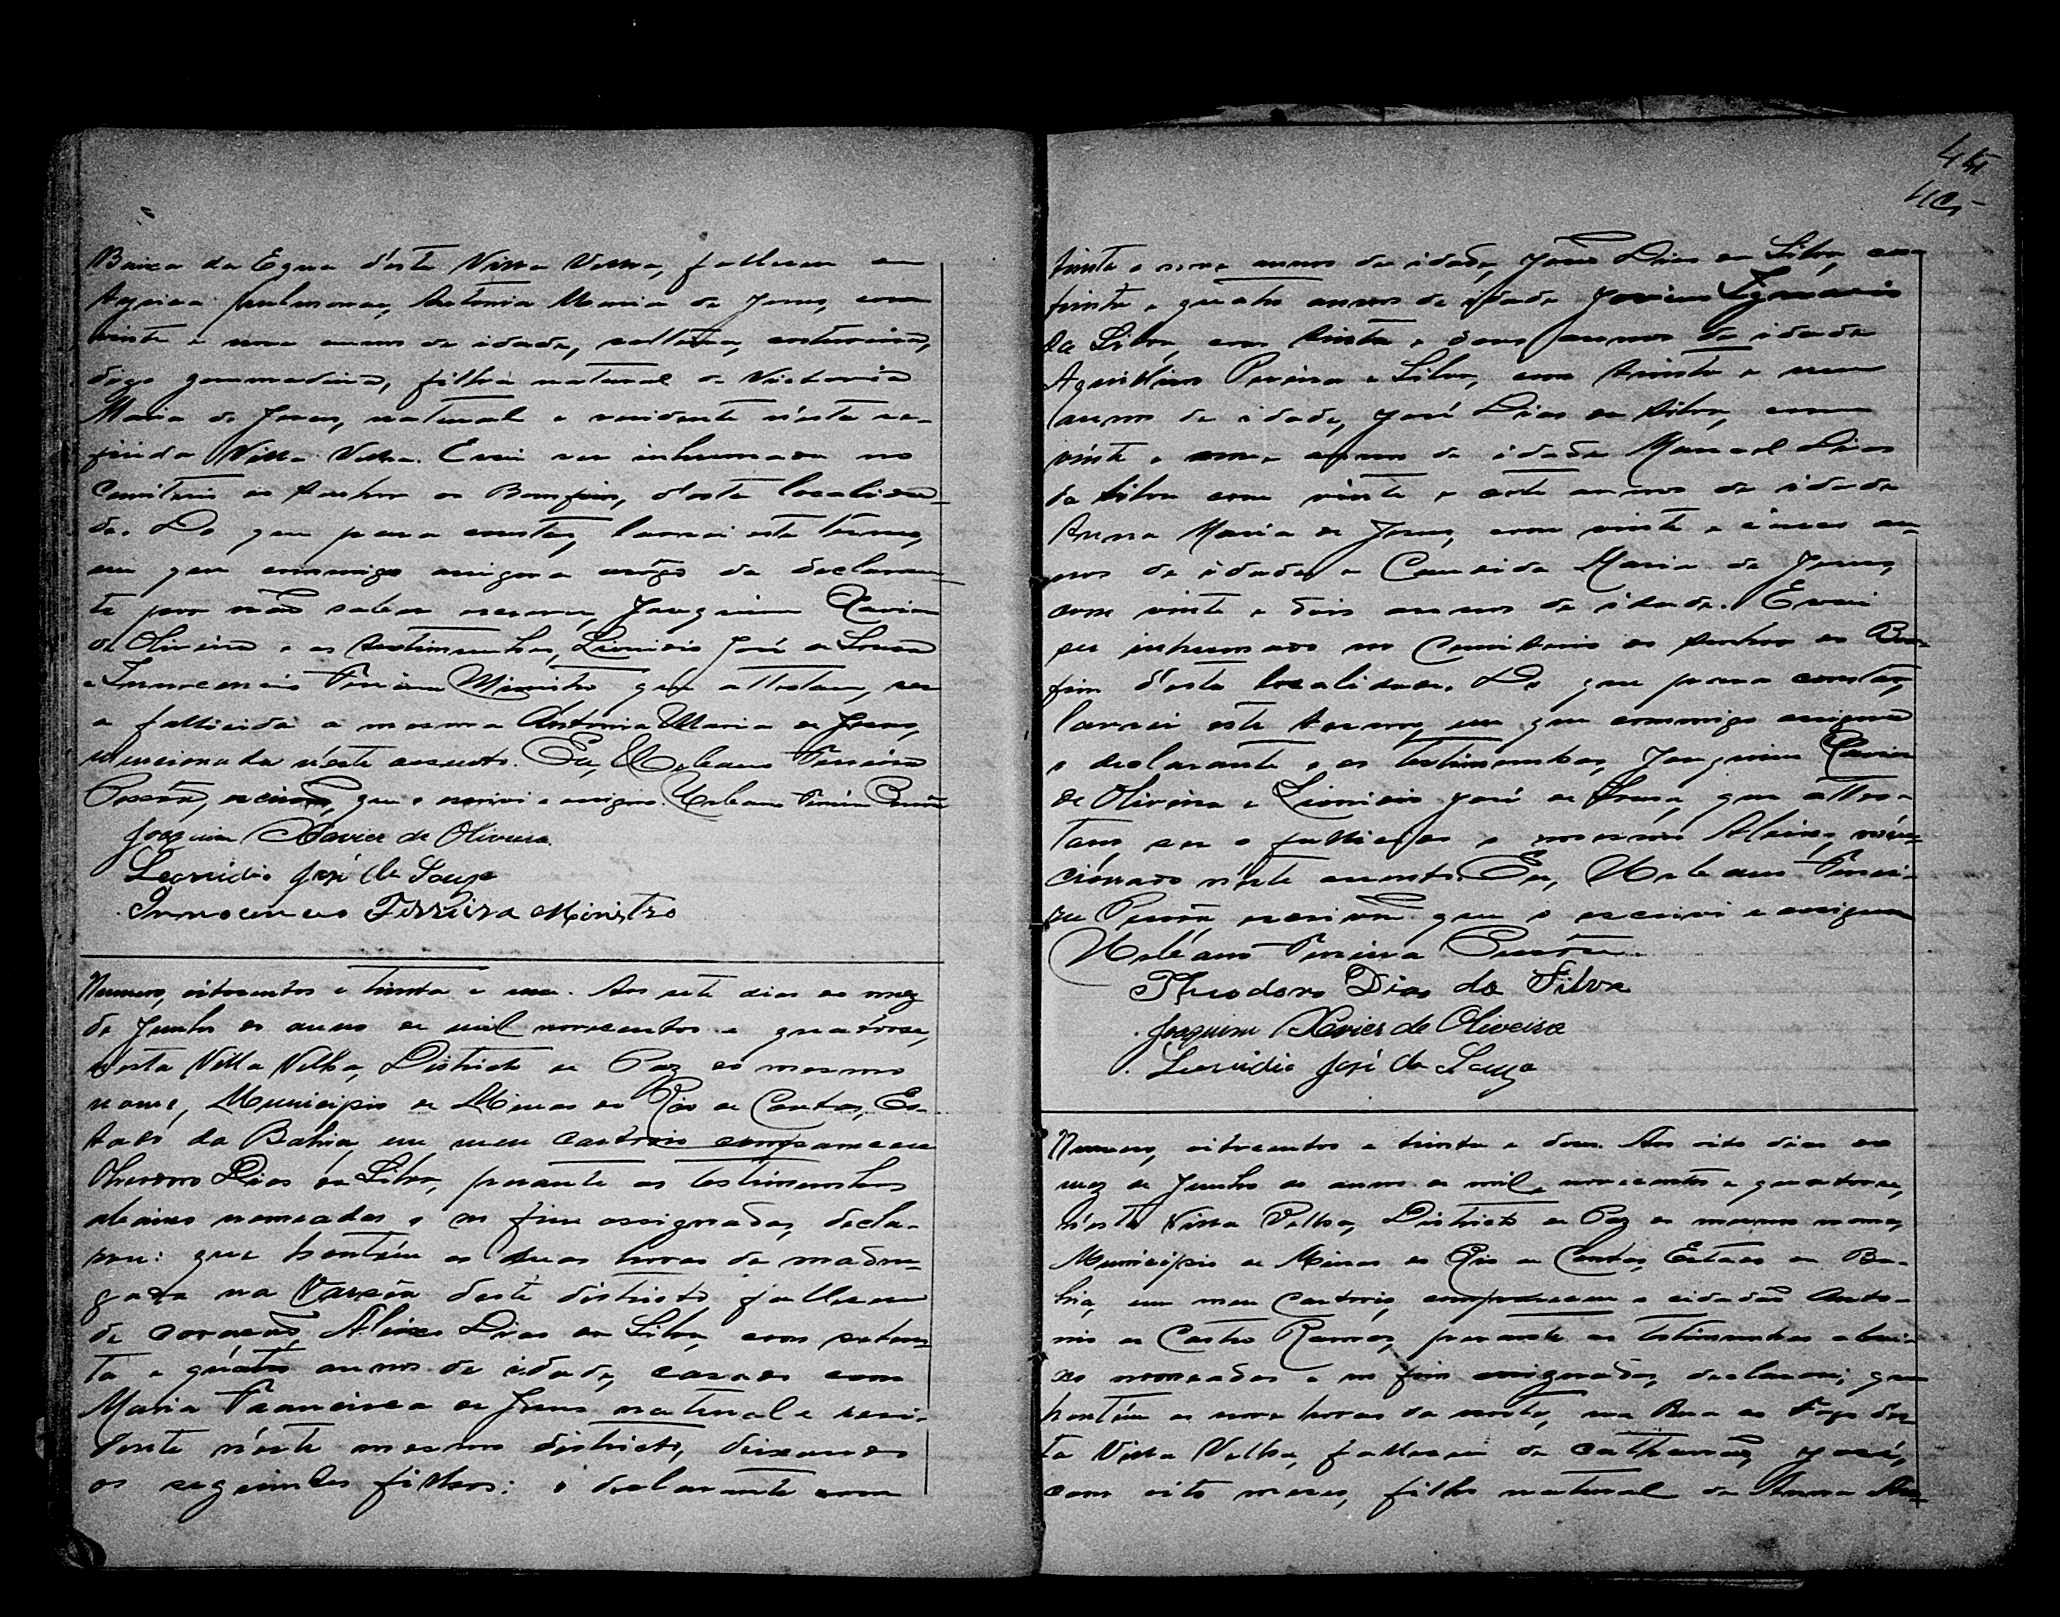 Baixa da Egua d'esta Villa Velha, falleceu em
pulmonar, Antonia Maria de Jesus, com
vinte e nove annos de idade, solteira, costureira,
digo gommadeira, filha natural de Victoria
Maria de Jesus, natural e residente n'esta re-
ferida Villa Velha. E vai ser inhumada no
Cemiterio do Senhor do Bomfim, d'esta localida-
de. Do que para constar, lavrei este termo,
em que commigo assigna a rogo da declaran-
te por não saber escrever, Joaquim Xavier
de Oliveira e as testimunhas, Lionidio José de Souza
e Innocencio Ferreira Ministro que attestam, ser
a fallicida a mesma Antonia Maria de Jesus,
mencionada n'este assento. Eu, Urbano Ferreira
escrivão, que o escrivi e assigno. Urbano
Joaquim Xavier de Oliveira.
Leonidio José de Souza
Innocencio Ferreira Ministro
Numero, oitocentos e trinta e um. Aos sete dias do mez
de Junho do anno de mil novecentos e quatorse,
nesta Villa Velha, Districto de Paz do mesmo
nome, Municipio de Minas do Rio de Contas, Es-
tado da Bahia, em meu cartorio compareceu
Theodoro Dias da Silva, perante as testimunhas
abaixo nomeadas e no fim assignadas, decla-
rou: que hontém as duas horas da madru-
gada na Varzea deste districto falleceu
de coração, Aleixo Dias da Silva, com seten-
ta e quatro annos de idade, casado com
Maria Francisca de Jesus natural e resi-
dente n'este mesmo districto, deixando
os seguintes filhos: o declarante com
44
trinta e nove annos de idade, João Dias da Silva, com
trinta e quatro annos de idade Jovino Ignacio
da Silva, com trinta e dous annos de idade
Pereira e Silva, com trinta e um
annos de idade, José Dias da Silva, com
vinte e nove annos de idade Manoel Dias
da Silva com vinte e sete annos de idade
Anna Maria de Jesus, com vinte e cinco an-
nos de idade e Candida Maria de Jesus,
com vinte e dois annos de idade. E vai
ser inhumado no Cemiterio do Senhor do Bom-
fim d'esta localidade. Do que para constar,
lavrei este termo, em que commigo assigna
o declarante e as testimunhas, Joaquim Xavier
de Oliveira e Lionidio José de Souza, que attes-
tam ser o fallicido o mesmo Aleixo, men-
cionado n'este assento. Eu, Urbano Ferrei-
ra escrivão que o escrivi e assigno
Urbano Ferreira
Theodoro Dias da Silva
Joaquim Xavier de Oliveira
Leonidio José de Souza
Numero, oitocentos e trinta e dous. Aos oito dias do
mez de Junho do anno de mil, novecentos e quatorse,
n'esta Villa Velha, Districto de Paz do mesmo nome,
Municipio de Minas do Rio de Contas, Estado da Ba-
hia, em meu cartorio, compareceu o cidadão Anto-
nio de Castro Ramos, perante as testimunhas abai-
xo nomeadas e no fim assignadas, declarou; que
hontém as nove horas da noite, na Rua do Fogo des-
ta Villa Velha, falleceu de catharrão, José,
com oito mezes, filho natural de Anna